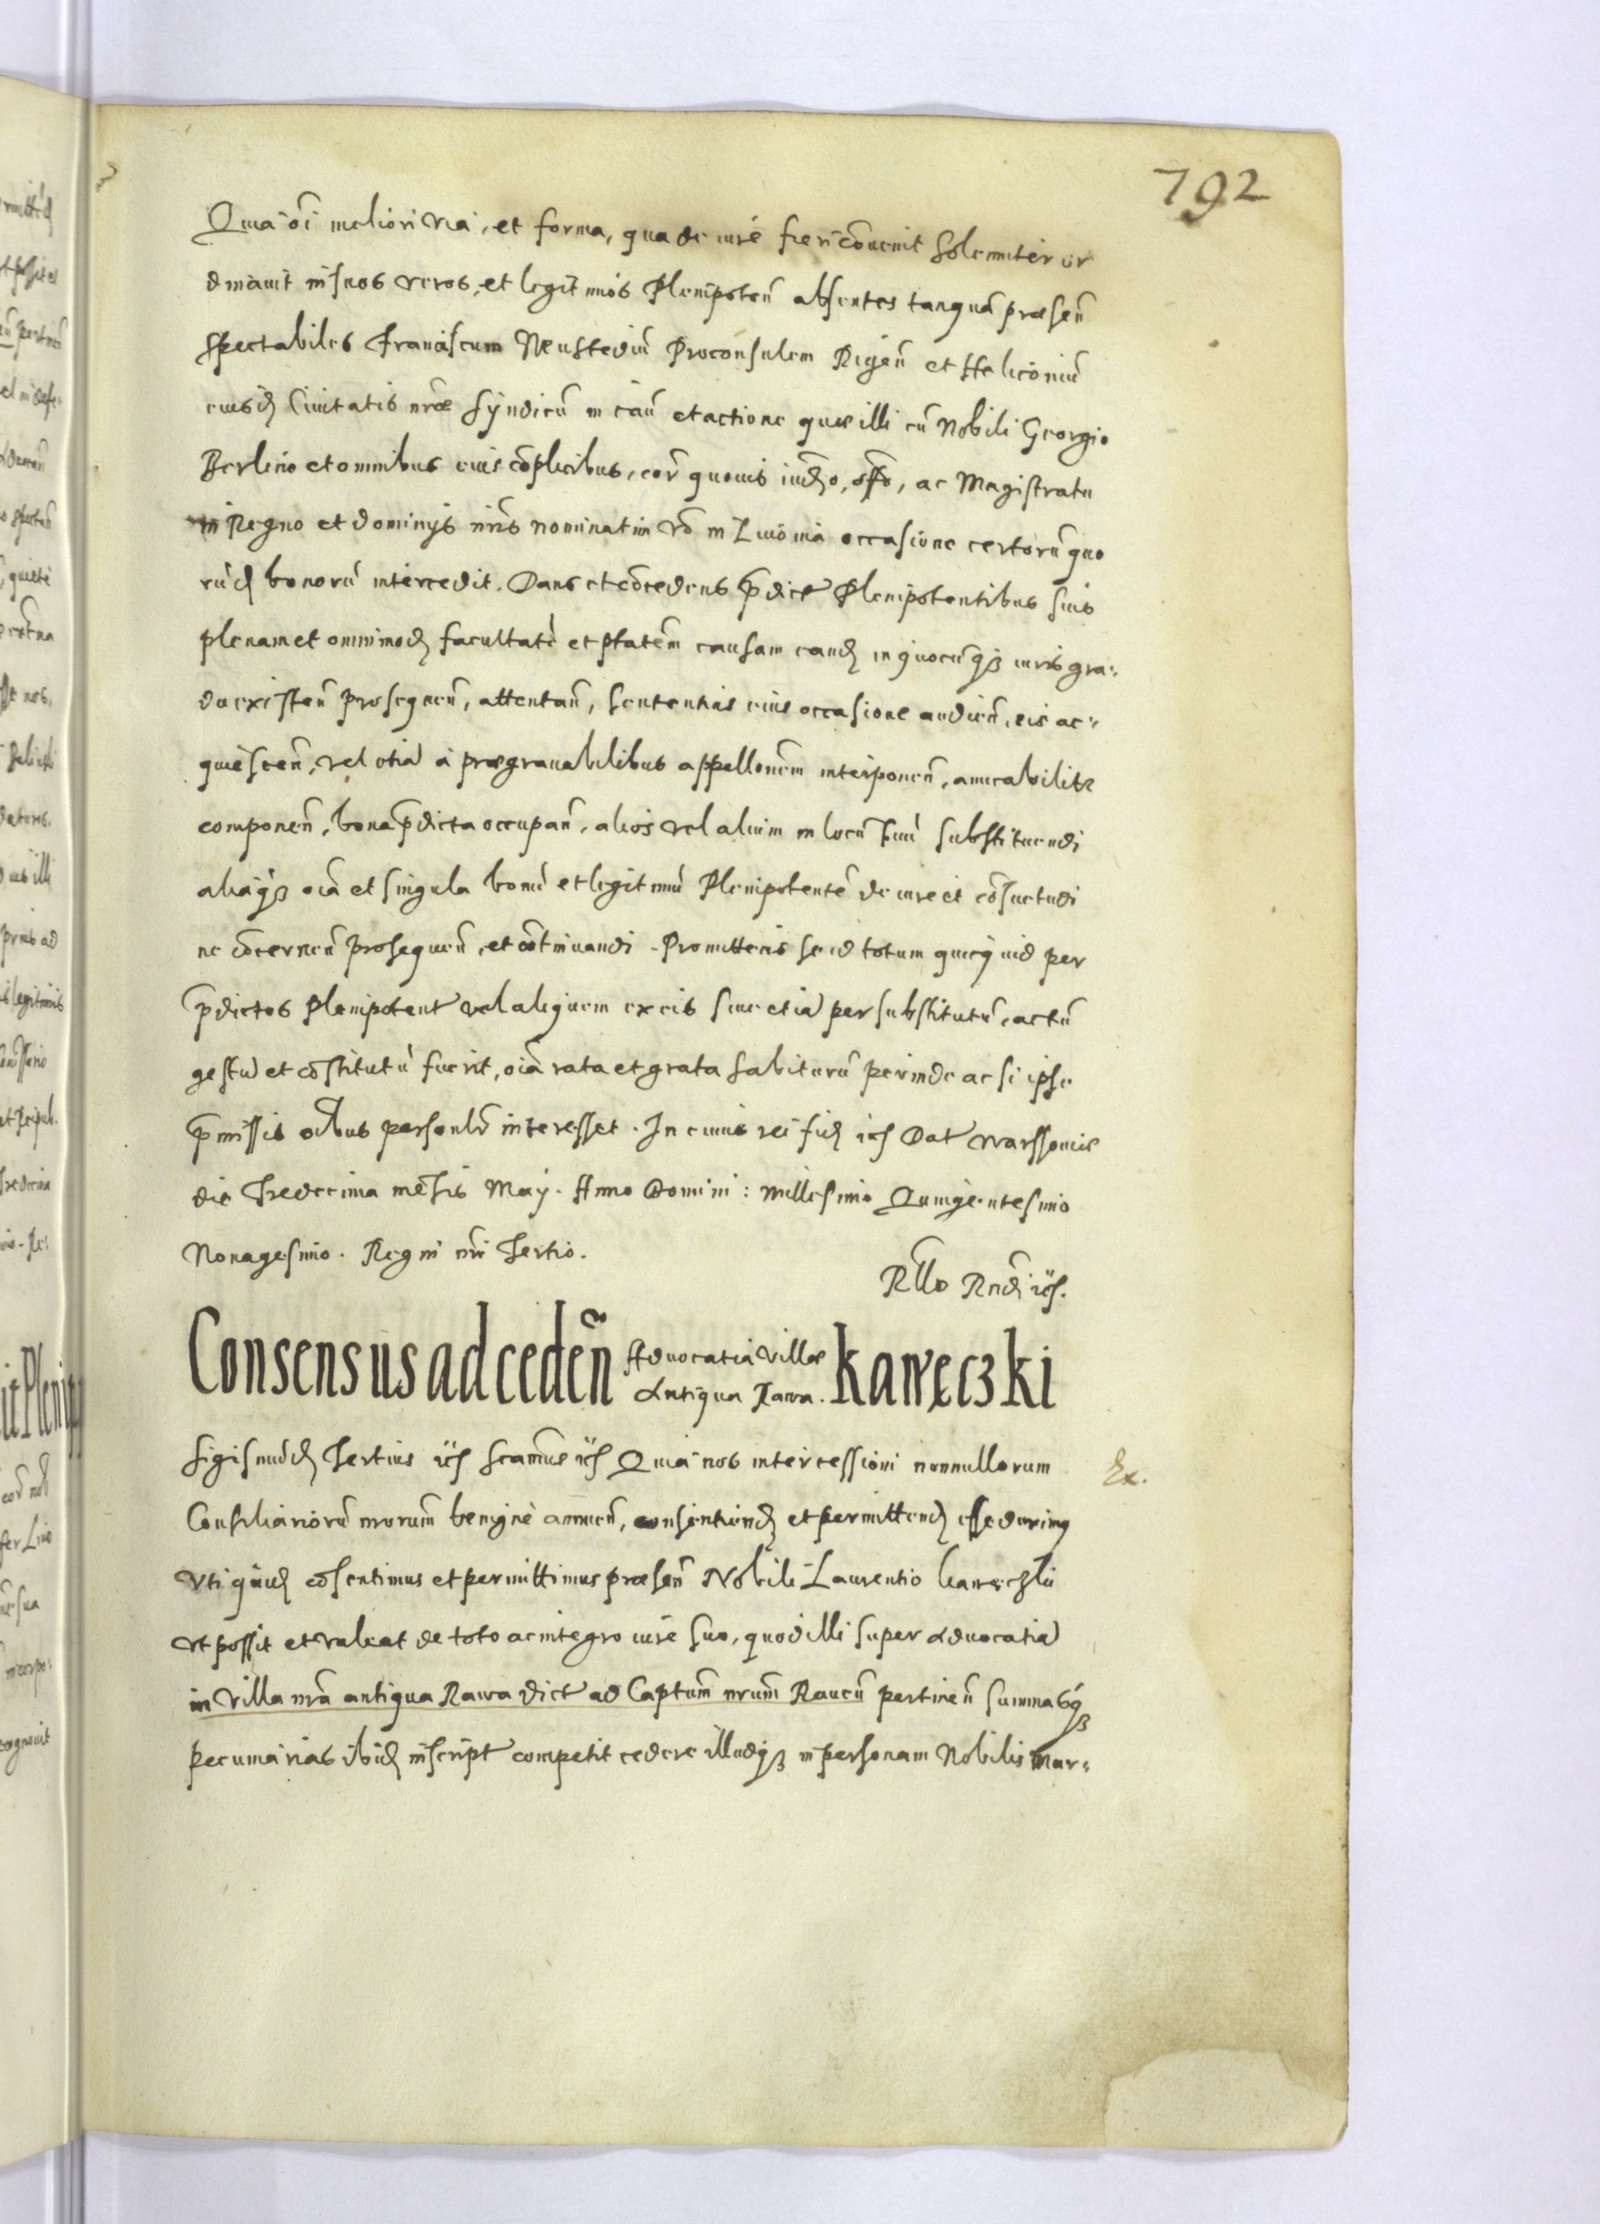 792
Quia oi meliori via, et forma, qua de iure fieri cōuenit Solemniter or
dinauit in suos veros, et legitimos Plenipoten̄ absentes tanquā præsen̄
Spectabiles Franciscum Neustediū Proconsulem Rigen̄ et Heliconiū
eiusd Ciuitatis nr̄æ Syndicū in cau̅ et actione quæ illi cū Nobili Georgio
Berlino et omnibus eius cōplicibus, cor̄ quouis iud̄o, off̄o, ac Magistratu
in Regno et dominijs nr̄is nominatim v̄o in Liuonia occasione certorū quo
rūd bonorū intercedit. Dans et cōcedens p̄dict Plenipotentibus suis
plenam et omnimod facultatē et ptātem causam eand in quocunq iuris gra-
du existen̄ prosequen̄, attentan̄, sententias eius occasione audien̄, eis ac-
quiescen̄, vel etiā à prægrauabilibus appellōnem interponen̄, amicabiliter
componen̄, bona p̄dicta occupan̄, alios vel alium in locū suū substituendi
aliaq oīa et singula bonū et legitimū Plenipotentē de iure et cōsuetudi
ne cōcernen̄ prosequen̄, et cōtinuandi. Promittens se id totum quicquid per
p̄dictos Plenipotent vel aliquem ex eis siue etiā per substitutū, actū
gestū et cōstitutū fuerit, oīa rata et grata habiturū perinde ac si ipse
p̄missis oībus personlr̄ interesset. In cuius rei fid etc Dat Warssouiæ
die Tredecima mēsis Maij. Anno Domini: Millesimo Quingentesimo
Nonagesimo. Regni nr̄i Tertio.
Rllo Rndi etc.
Consensus ad ceden̄ Aduocatiā Villæ Antiqua Rawa. Kawęczki
Sigismūd Tertius etc Scamus etc Quia nos intercessioni nonnullorum
Ex.
Consiliariorū nrorum benigne annuen̄, consentiend et permittend esse duximus
Vti quid cōsentimus et permittimus præsen̄ Nobili Laurentio Kaweczki
vt possit et valeat de toto ac integro iure suo, quod illi super Aduocatiā
in Villa nr̄a antiqua Rawa dict ad Captum̄ nrum̄ Rauen̄ pertinen̄ summasq
pecuniarias ibid inscript competit cedere illudq in personam Nobilis Mar-